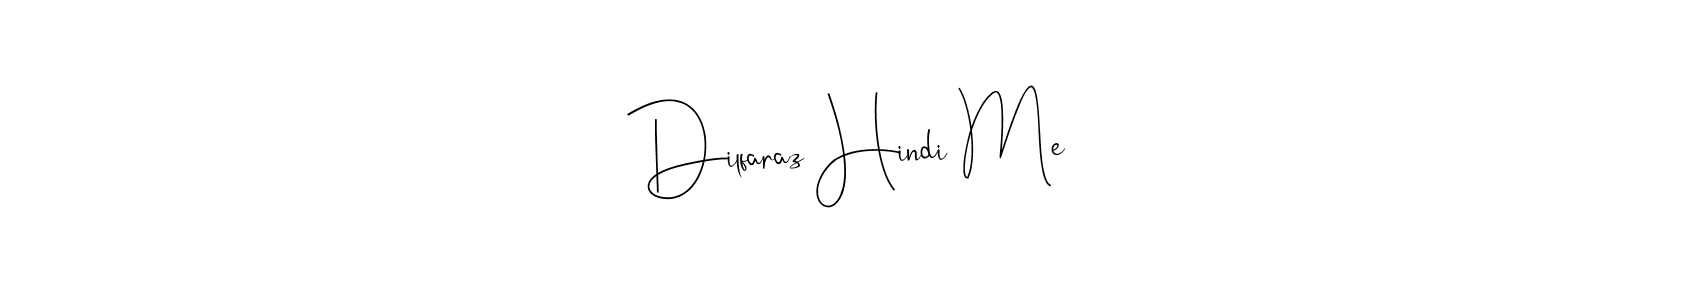 Dilfaraz Hindi Me